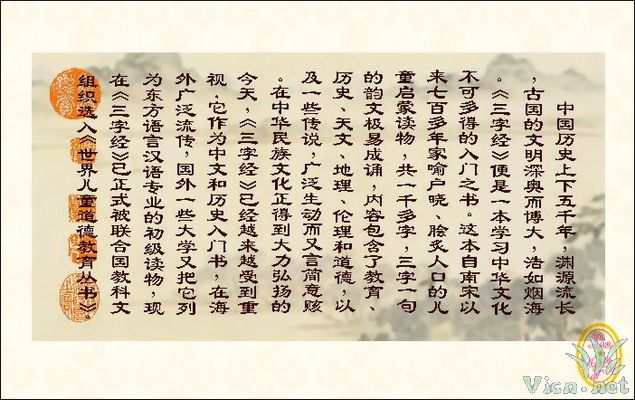 中国历史上下五千年，渊源流长
，古国的文明深奥而博大，浩如烟海
。《三字经》便是一本学习中华文化
不可多得的入门之书。这本自南宋以
来七百多年家喻户晓、脍炙人口的儿
童启蒙读物，共一千多字，三字一句
的韵文极易成诵，内容包含了教育、
历史、天文、地理、伦理和道德，以
及一些传说，广泛生动而又言简意赅
。在中华民族文化正得到大力弘扬的
今天，《三字经》已经越来越受到重
视，它作为中文和历史入门书，在海
外广泛流传，国外一些大学又把它列
为东方语言汉语专业的初级读物，现
在《三字经》已正式被联合国教科文
组织选入《世界儿童道德教育丛书》。
Vicn.net